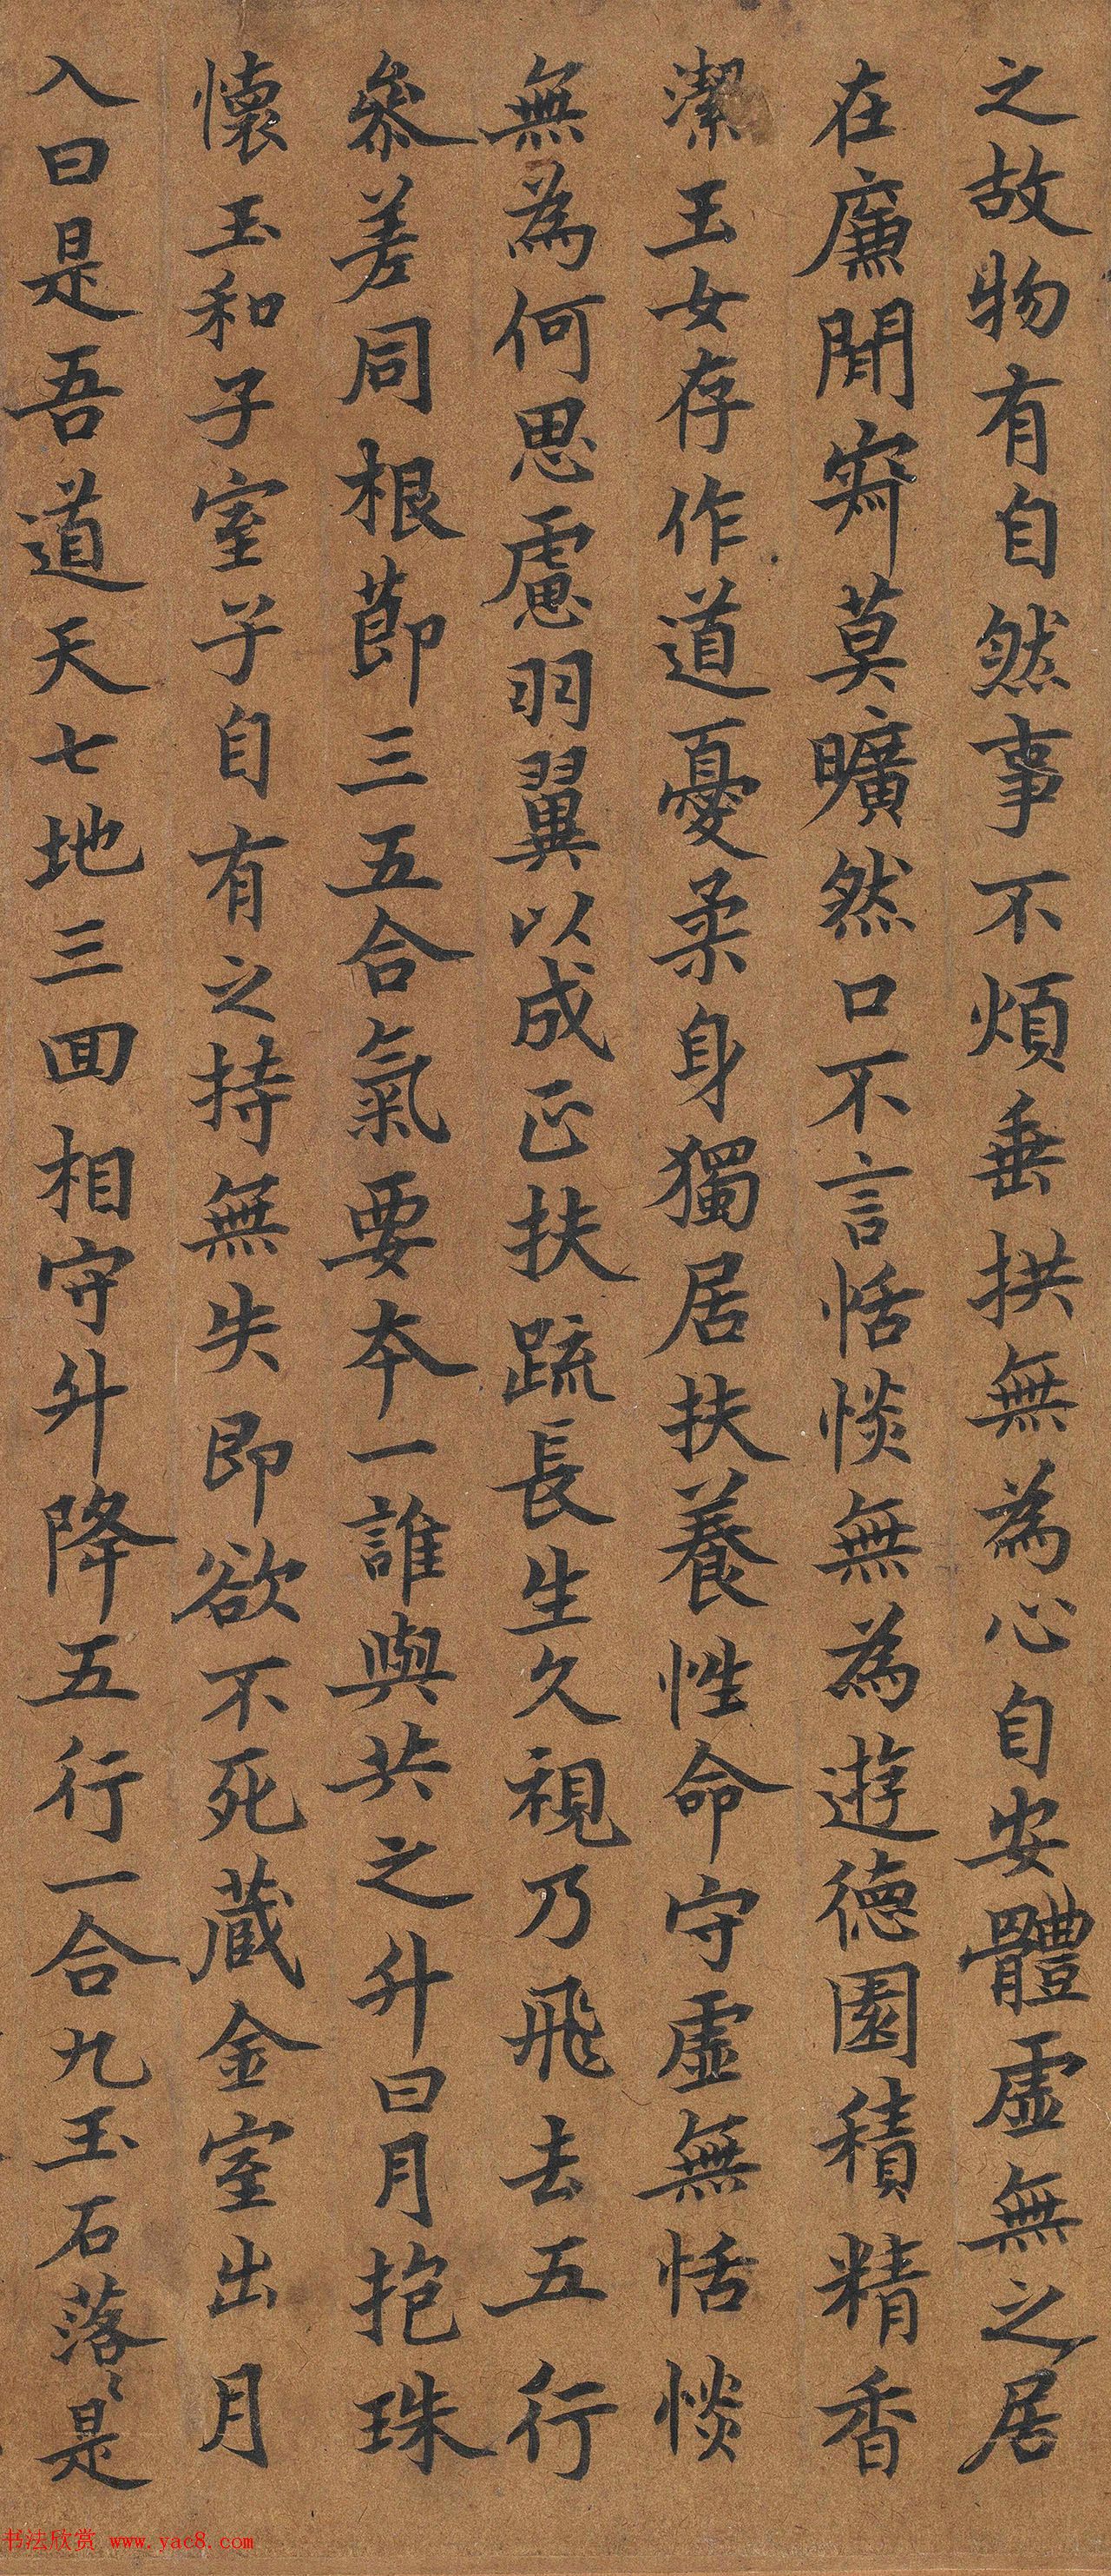 之故物有自然事不煩垂拱無為心自安體虛無之居
在廉間寂莫曠然口不言恬惔無為遊德園積精香
潔玉女存作道憂柔身獨居扶養性命守虛無恬惔
無為何思慮羽翼以成正扶疏長生久視乃飛去五行
參差同根節三五合氣要本一誰與共之升日月抱珠
懷玉和子室子自有之持無失即欲不死藏金室出月
入日是吾道天七地三回相守升降五行一合九玉石落〻是
书法欣赏 www.yac8.com